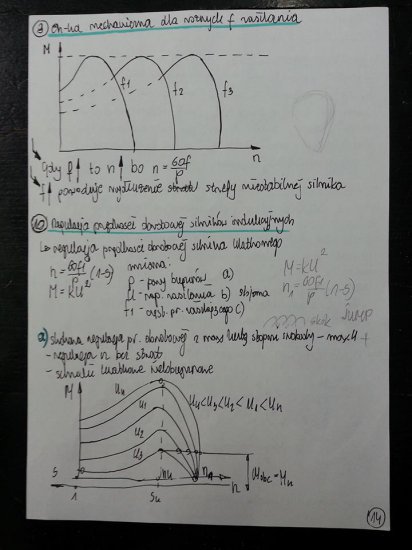 9) Ch-ka mechaniczna dla różnych f zasilania
M
f1 f2 f3
n
Gdy f↑ to n↑ bo n = 60f/p
f↑ powoduje wydłużenie strefy niestabilnej silnika
10) Regulacja prędkości obrotowej silników indukcyjnych
↳ regulacja prędkości obrotowej silnika
n = 60f1/p (1-s)
M = kU²
zmiana:
p - pary biegunów a)
U - nap. zasilania b)
f1 - częst. pr. zasilającego c)
M = kU²
n1 = 60f/p (1-s)
skok
a) skokowa regulacja pr. obrotowej z
- regulacja n bez strat
- silniki klatkowe wielobiegowe
M
Un
U1
U2
U3
U4<U3<U2<U1<Un
s
1
Sk
nk
n
Mobc = Mn
14